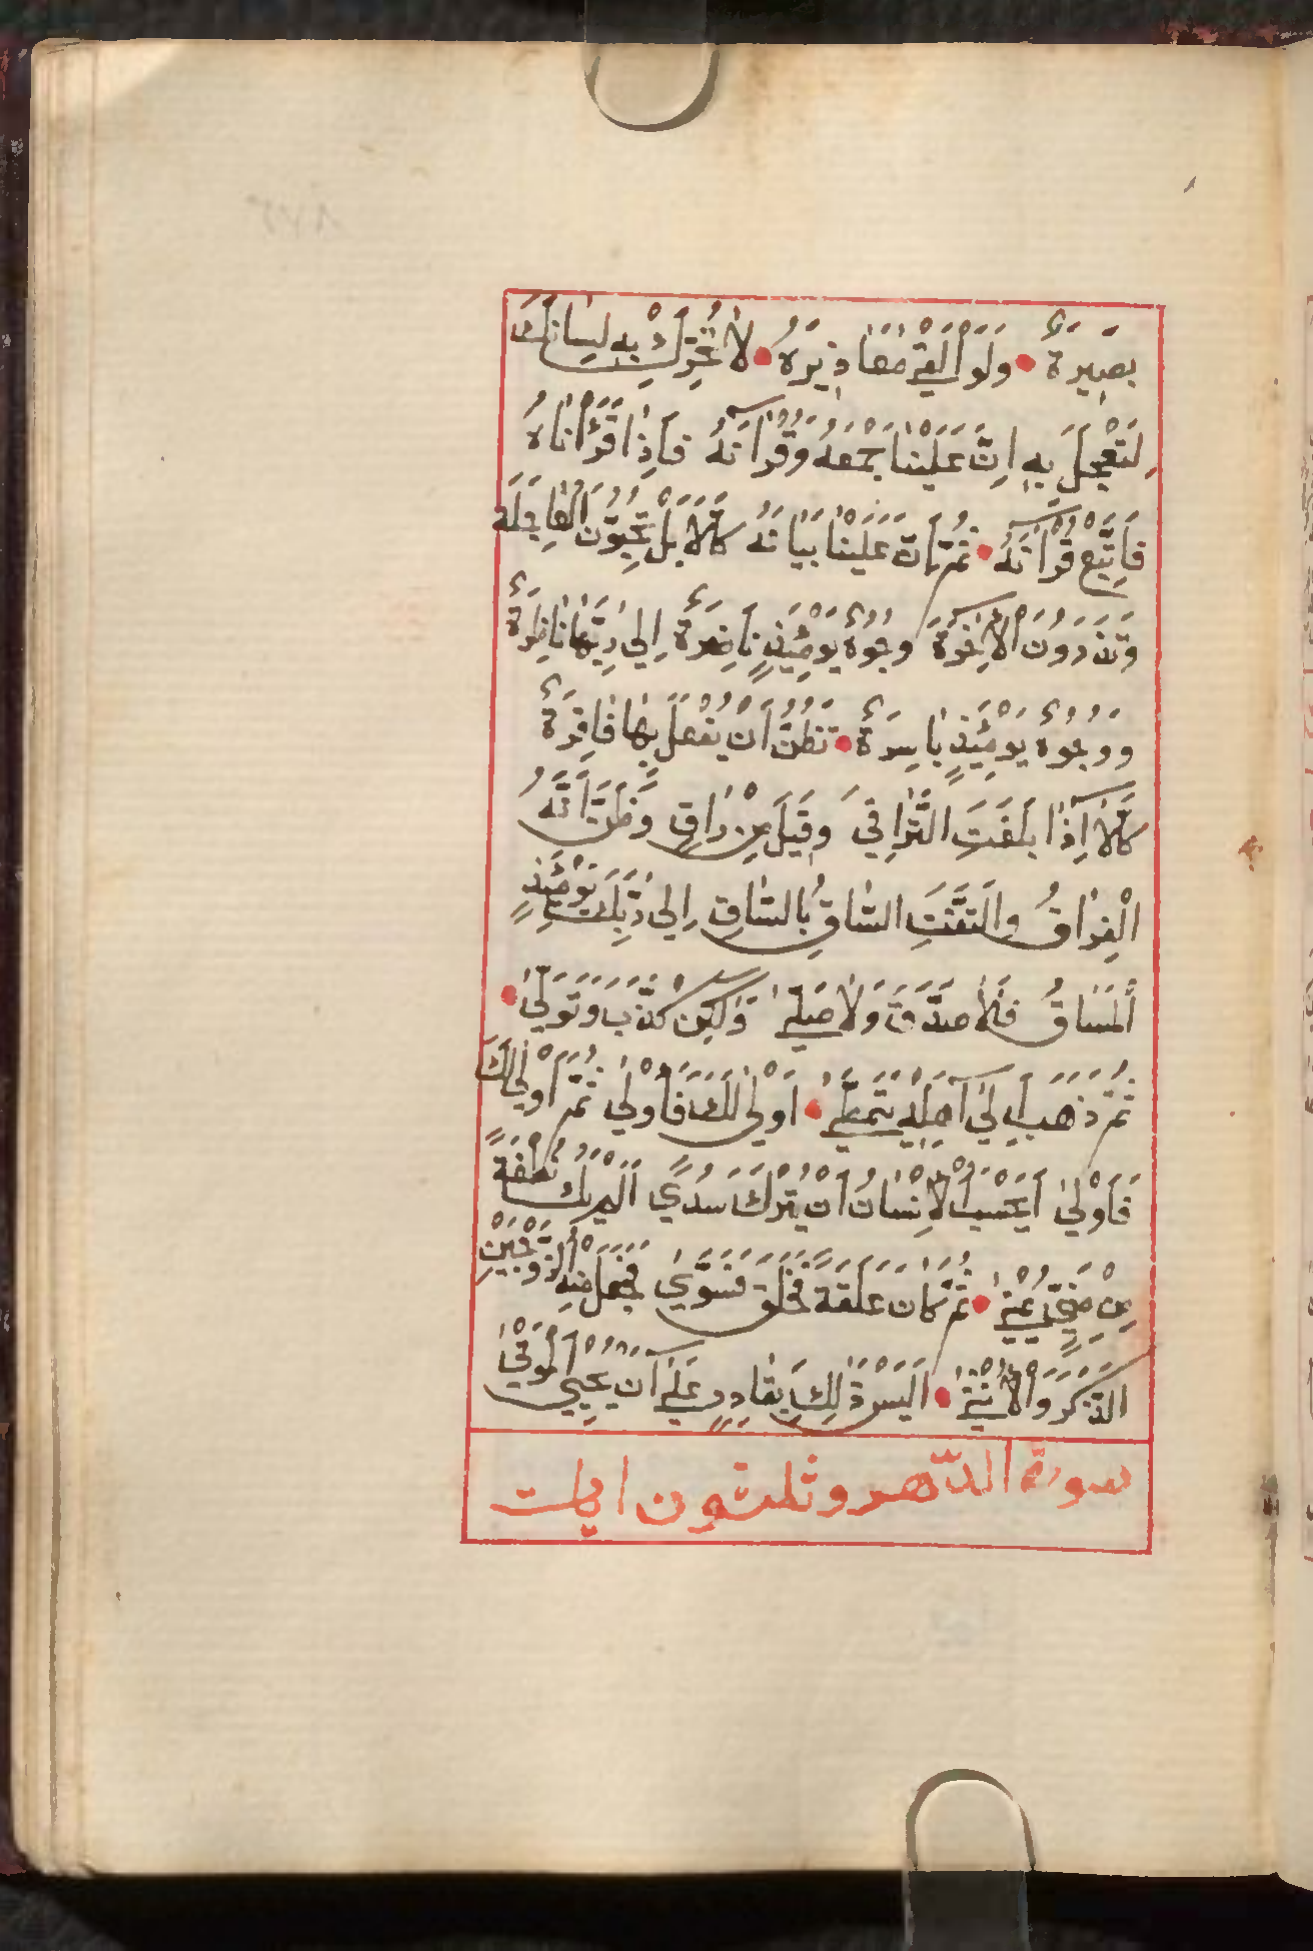 بَصِيرَةٌ • وَلَوْ اَلْقٰى مَعَاذِيرَهُ • لَا تُحَرِّكْ بِهِ لِسَانَكَ
لِتَعْجَلَ بِهِ اِنَّ عَلَيْنَا جَمْعَهُ وَقُرْآنَهُ فَاِذَا قَرَأْنَاهُ
فَاتَّبِعْ قُرْآنَهُ • ثُمَّ اِنَّ عَلَيْنَا بَيَانَهُ كَلَّا بَلْ تُحِبُّونَ الْعَاجِلَةَ
وَتَذَرُونَ الْاٰخِرَةَ وُجُوهٌ يَوْمَئِذٍ نَاضِرَةٌ اِلٰي رَبِّهَا نَاظِرَةٌ
وَوُجُوهٌ يَوْمَئِذٍ بَاسِرَةٌ • تَظُنُّ اَنْ يُفْعَلَ بِهَا فَاقِرَةٌ
كَلَّا اِذَا بَلَغَتِ التَّرَاقِيَ وَقِيلَ مِنْ رَاقٍ وَظَنَّ اَنَّهُ
الْفِرَاقُ وَالْتَفَّتِ السَّاقُ بِالسَّاقِ اِلٰي رَبِّكَ يَوْمَئِذٍ
الْمَسَاقُ فَلَا صَدَّقَ وَلَا صَلّٰى وَلٰكِنْ كَذَّبَ وَتَوَلّٰي •
ثُمَّ ذَهَبَ اِلٰي اَهْلِهِ يَتَمَطّٰى • اَوْلٰي لَكَ فَاَوْلٰي ثُمَّ اَوْلٰي لَكَ
فَاَوْلٰي اَيَحْسَبُ الْاِنْسَانُ اَنْ يُتْرَكَ سُدًي اَلَمْ يَكُ نُطْفَةً
مِنْ مَنِيٍّ يُمْنٰى • ثُمَّ كَانَ عَلَقَةً فَخَلَقَ فَسَوّٰي فَجَعَلَ مِنْهُ الزَّوْجَيْنِ
الذَّكَرَ وَالْاُنْثٰى • اَلَيْسَ ذٰلِكَ بِقَادِرٍ عَلٰى اَنْ يُحْيِيَ الْمَوْتٰي
سورة الدّهر وثلثون ايات